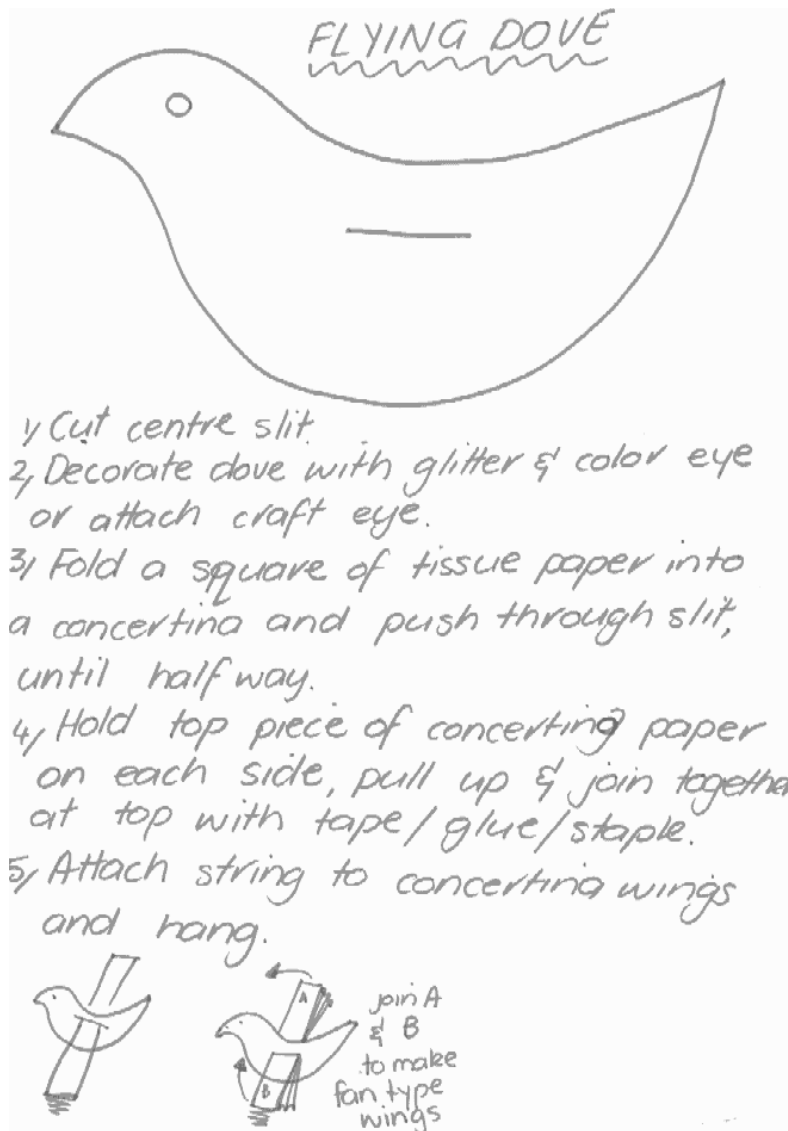 FLYING DOVE
1, Cut centre slit
2, Decorate dove with glitter & color eye
or attach craft eye.
3, Fold a square of tissue paper into
a concertina and push through slit,
until half way.
4, Hold top piece of concertina paper
on each side, pull up & join together
at top with tape/glue/staple.
5, Attach string to concertina wings
and hang.
A
B
join A
& B
to make
fan type
wings